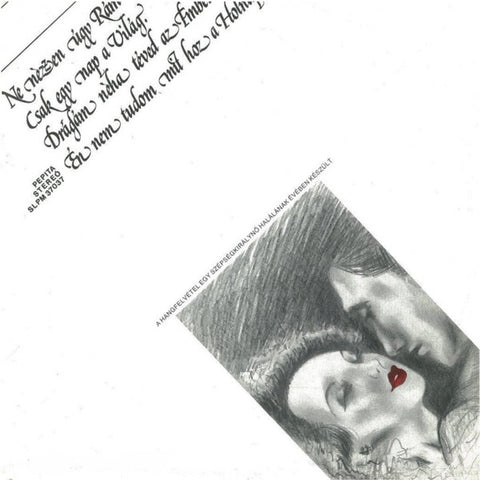 Ne nézzen úgy Rám
Csak egy nap a Világ.
Drágám néha téved az
Én nem tudom mit hoz a
PEPITA
STEREO
SLPM 37037
A HANGFELVÉTEL EGY SZÉPSÉGKIRÁLYNŐ HALÁLÁNAK ÉVÉBEN KÉSZÜLT